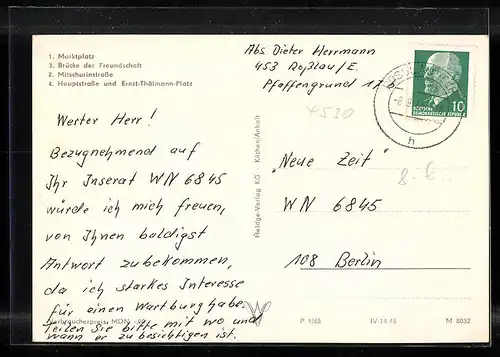 1. Marktplatz
3. Brücke der Freundschaft
2. Mitschurinstraße
4. Hauptstraße und Ernst-Thälmann-Platz
Abs. Dieter Herrmann
453 Roßlau/E.
Pfaffengrund 17 b
4530
10
DEUTSCHE
DEMOKRATISCHE REPUBLIK
h
Werter Herr!
Bezugnehmend auf
Ihr Inserat WN 6845
würde ich mich freuen,
von Ihnen baldigst
Antwort zubekommen,
da ich starkes Interesse
für einen Wartburg habe.
Teilen Sie bitte mit wo und
wann er zu besichtigen ist.
Verbraucherpreis: MDN
Reldge-Verlag KG · Köthen/Anhalt
"Neue Zeit"
WN 6845
108 Berlin
P 1/65
IV-14-45
M 8052